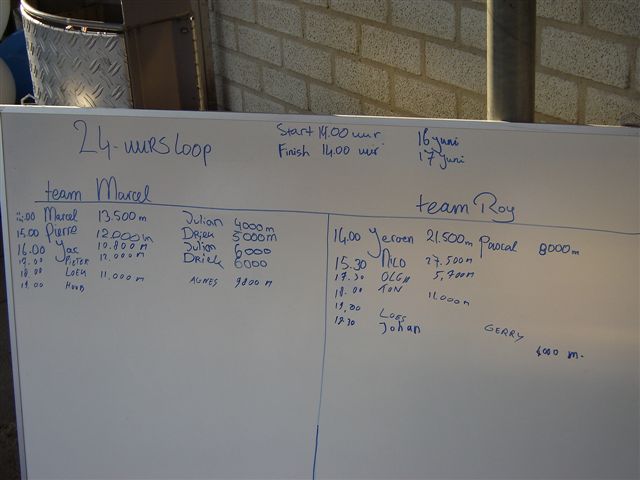 24-uursloop
Start 14.00 uur.
Finish 14.00 uur
16 juni
17 juni
team Marcel
14.00 Marcel 13.500m Julian 4000m
15.00 Pierre 12.000m Dries 5000m
16.00 Jac 10.800m Julian 6000
17.00 Peter 12.000m Driek 6000
18.00 Loek 11.000m Agnes 9800m
19.00 Huub
team Roy
14.00 Jeroen 21.500m Pascal 8000m
15.30 Nilo 27.500m
17.30 Olga 5,700m
18.00 Ton 11.000m
19.00 Loes
19.30 Johan Gerry
4000 m.